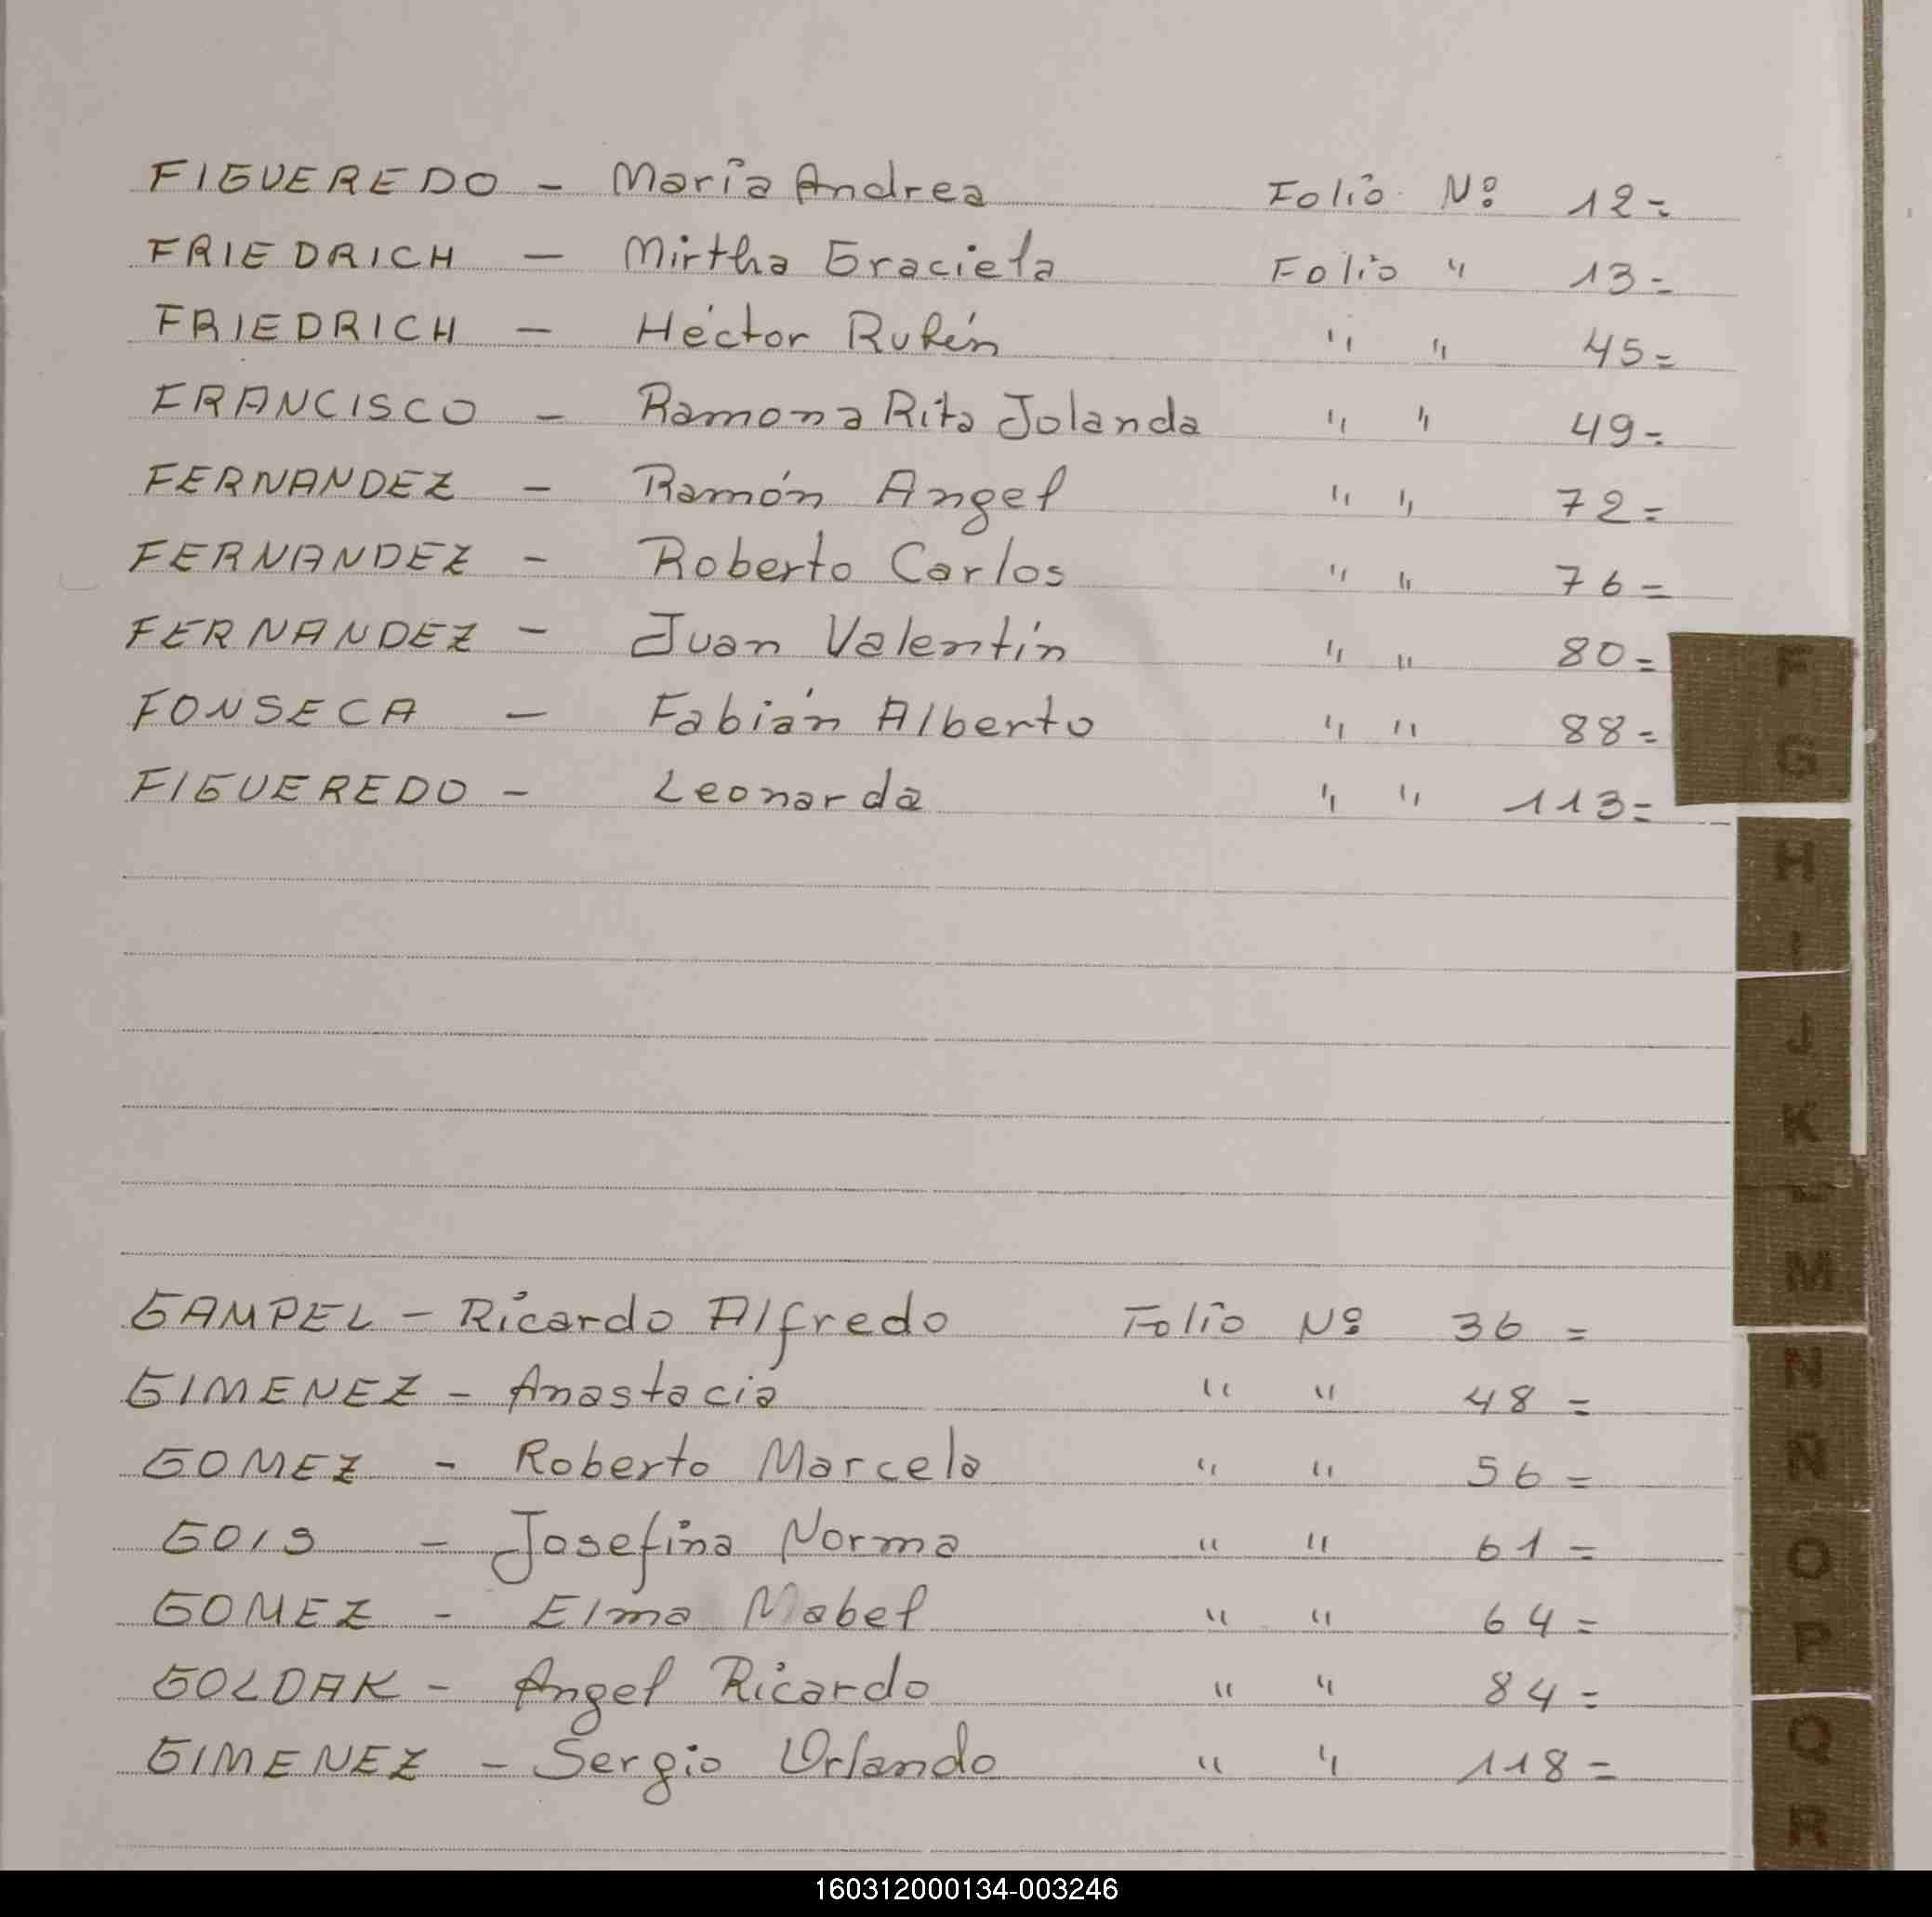 FIGUEREDO - María Andrea Folio Nº 12=
FRIEDRICH - Mirtha Graciela Folio " 13=
FRIEDRICH - Héctor Rubén " " 45=
FRANCISCO - Ramona Rita Jolanda " " 49=
FERNANDEZ - Ramón Angel " " 72=
FERNANDEZ - Roberto Carlos " " 76=
FERNANDEZ - Juan Valentín " " 80=
FONSECA - Fabián Alberto " " 88=
FIGUEREDO - Leonarda " " 113=
GAMPEL - Ricardo Alfredo Folio Nº 36=
GIMENEZ - Anastacia " " 48=
GOMEZ - Roberto Marcelo " " 56=
GOIS - Josefina Norma " " 61=
GOMEZ - Elma Mabel " " 64=
GOLDAK - Angel Ricardo " " 84=
GIMENEZ - Sergio Orlando " " 118=
F
G
H
I
J
K
L
M
N
Ñ
O
P
Q
R
160312000134-003246